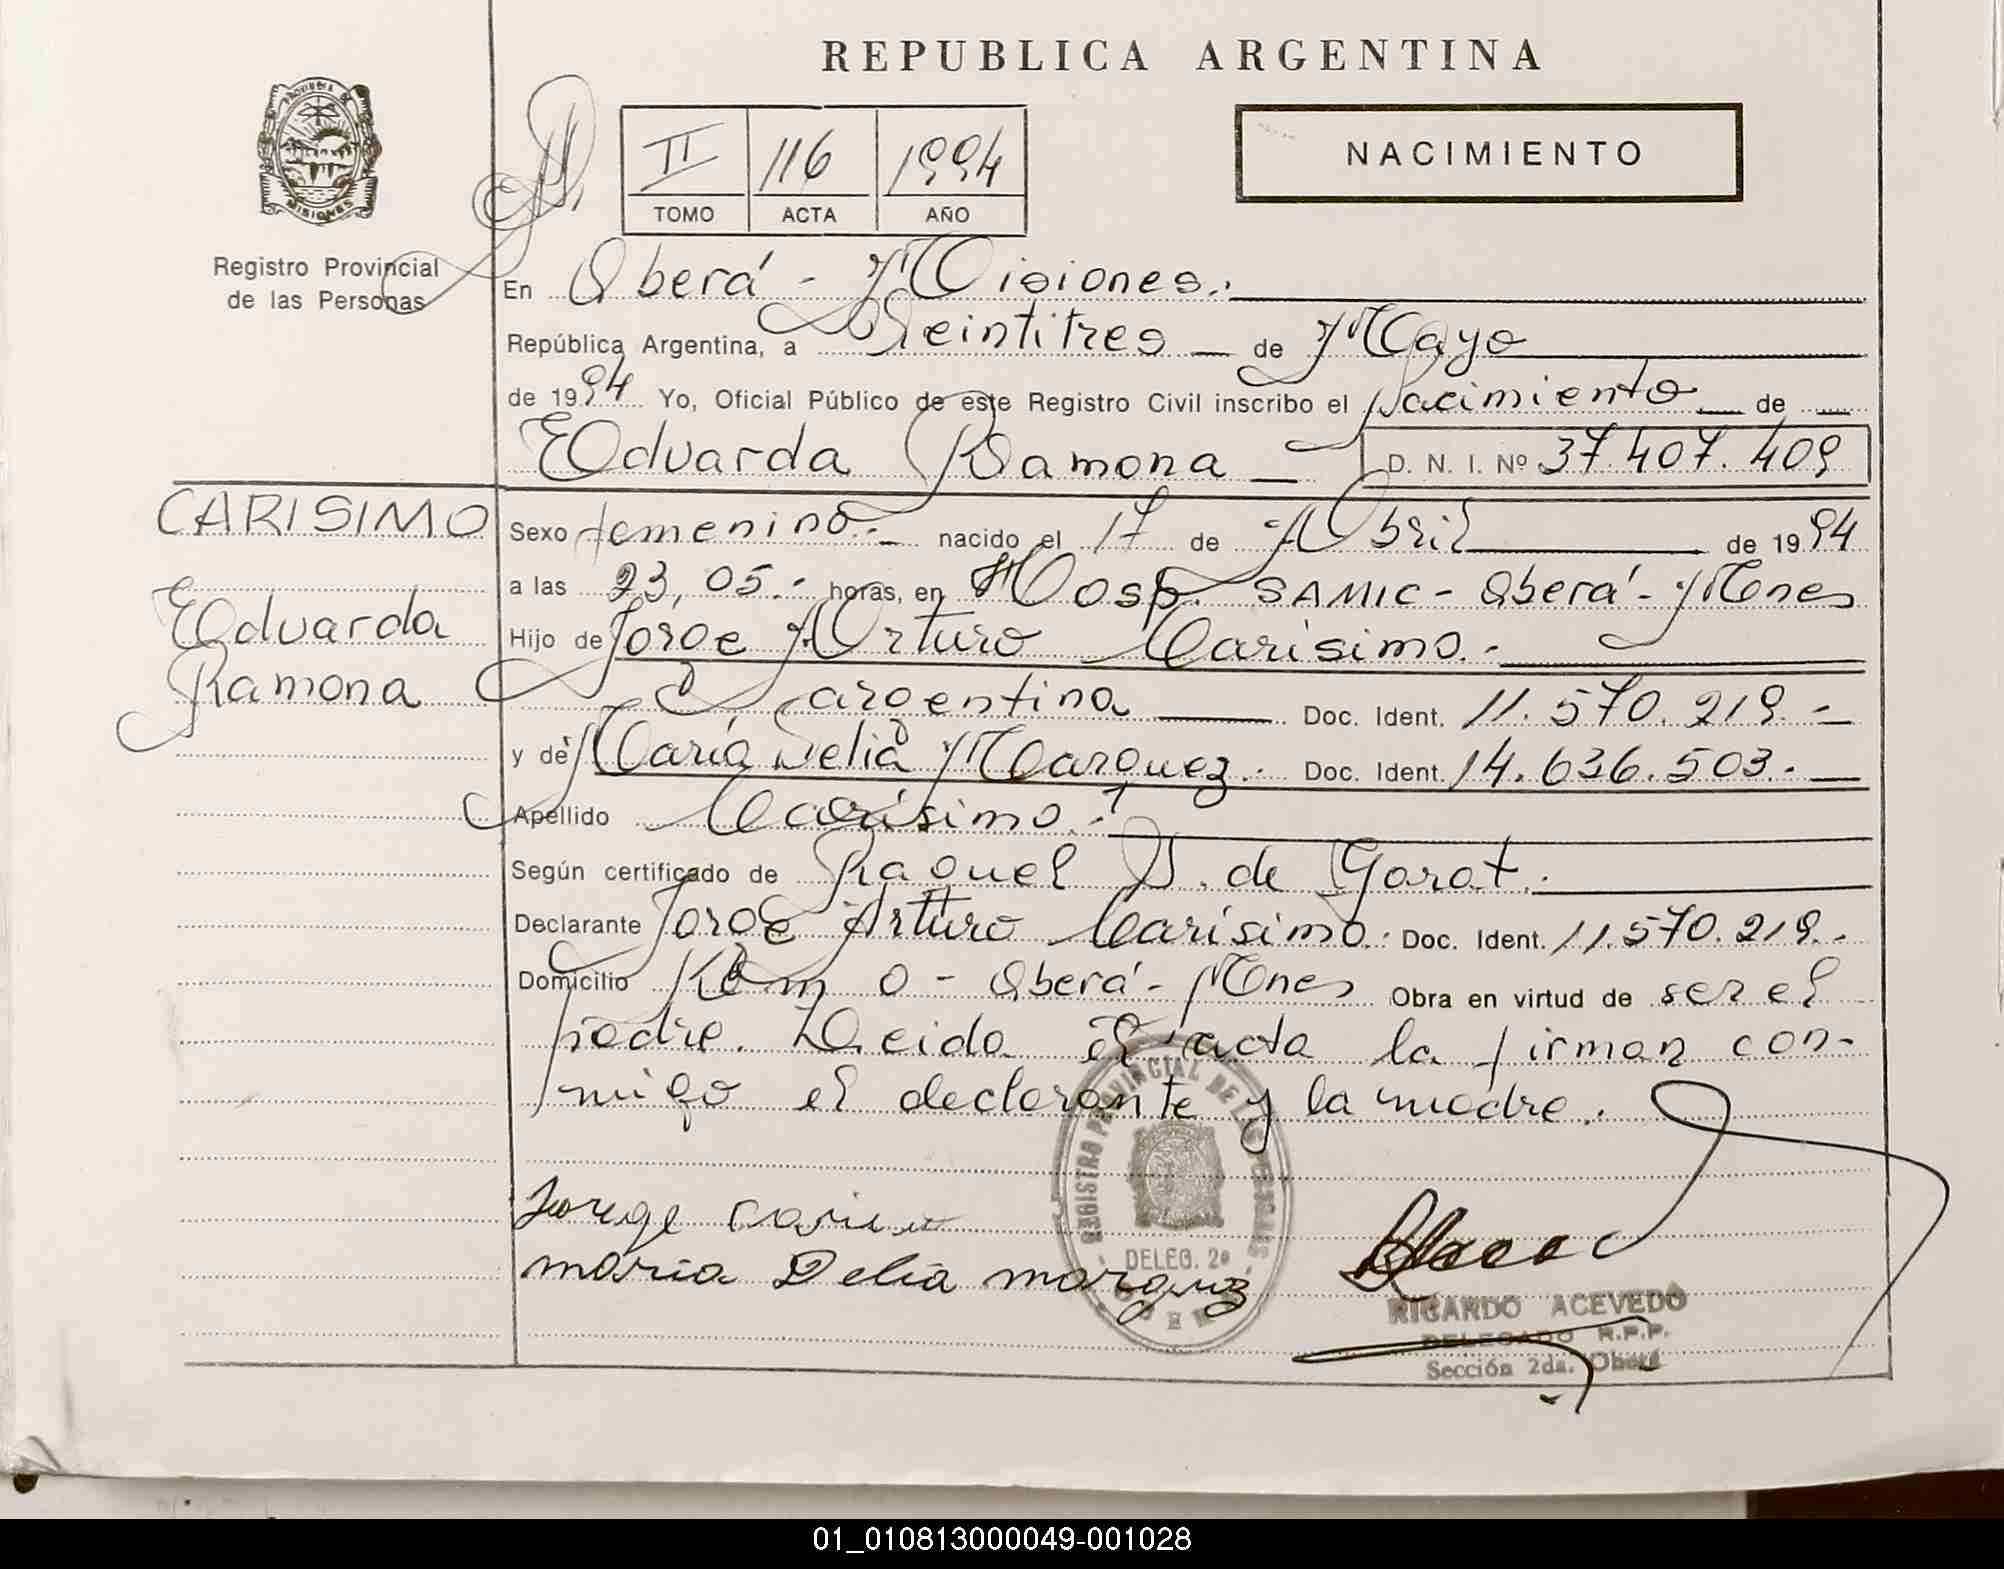 REPUBLICA ARGENTINA
PROVINCIA DE
MISIONES
Registro Provincial
de las Personas
II 116 1994
TOMO ACTA AÑO
NACIMIENTO
En Oberá - Misiones.
República Argentina, a Veintitres de Mayo
de 1994 Yo, Oficial Público de este Registro Civil inscribo el Nacimiento de
Eduarda Ramona D. N. I. Nº 37.407.409
CARISIMO
Eduarda
Ramona
Sexo femenino.- nacido el 17 de Abril de 1994
a las 23,05.- horas, en Hosp. SAMIC - Oberá - Mnes
Hijo de Jorge Arturo Carisimo.-
argentina Doc. Ident. 11.570.219.-
y de María Delia Marquez.- Doc. Ident. 14.636.503.-
Apellido Carísimo.-
Según certificado de Raquel D. de Gorot.
Declarante Jorge Arturo Carísimo. Doc. Ident. 11.570.219.-
Domicilio Km 0 - Oberá - Mnes Obra en virtud de ser el
padre. Leida el acta la firman con-
migo el declarante y la madre.
REGISTRO PROVINCIAL DE LAS PERSONAS
DELEG. 2ª
Jorge
maria Delia marquez
RICARDO ACEVEDO
DELEGADO R.P.P.
Sección 2da. Oberá
01_010813000049-001028